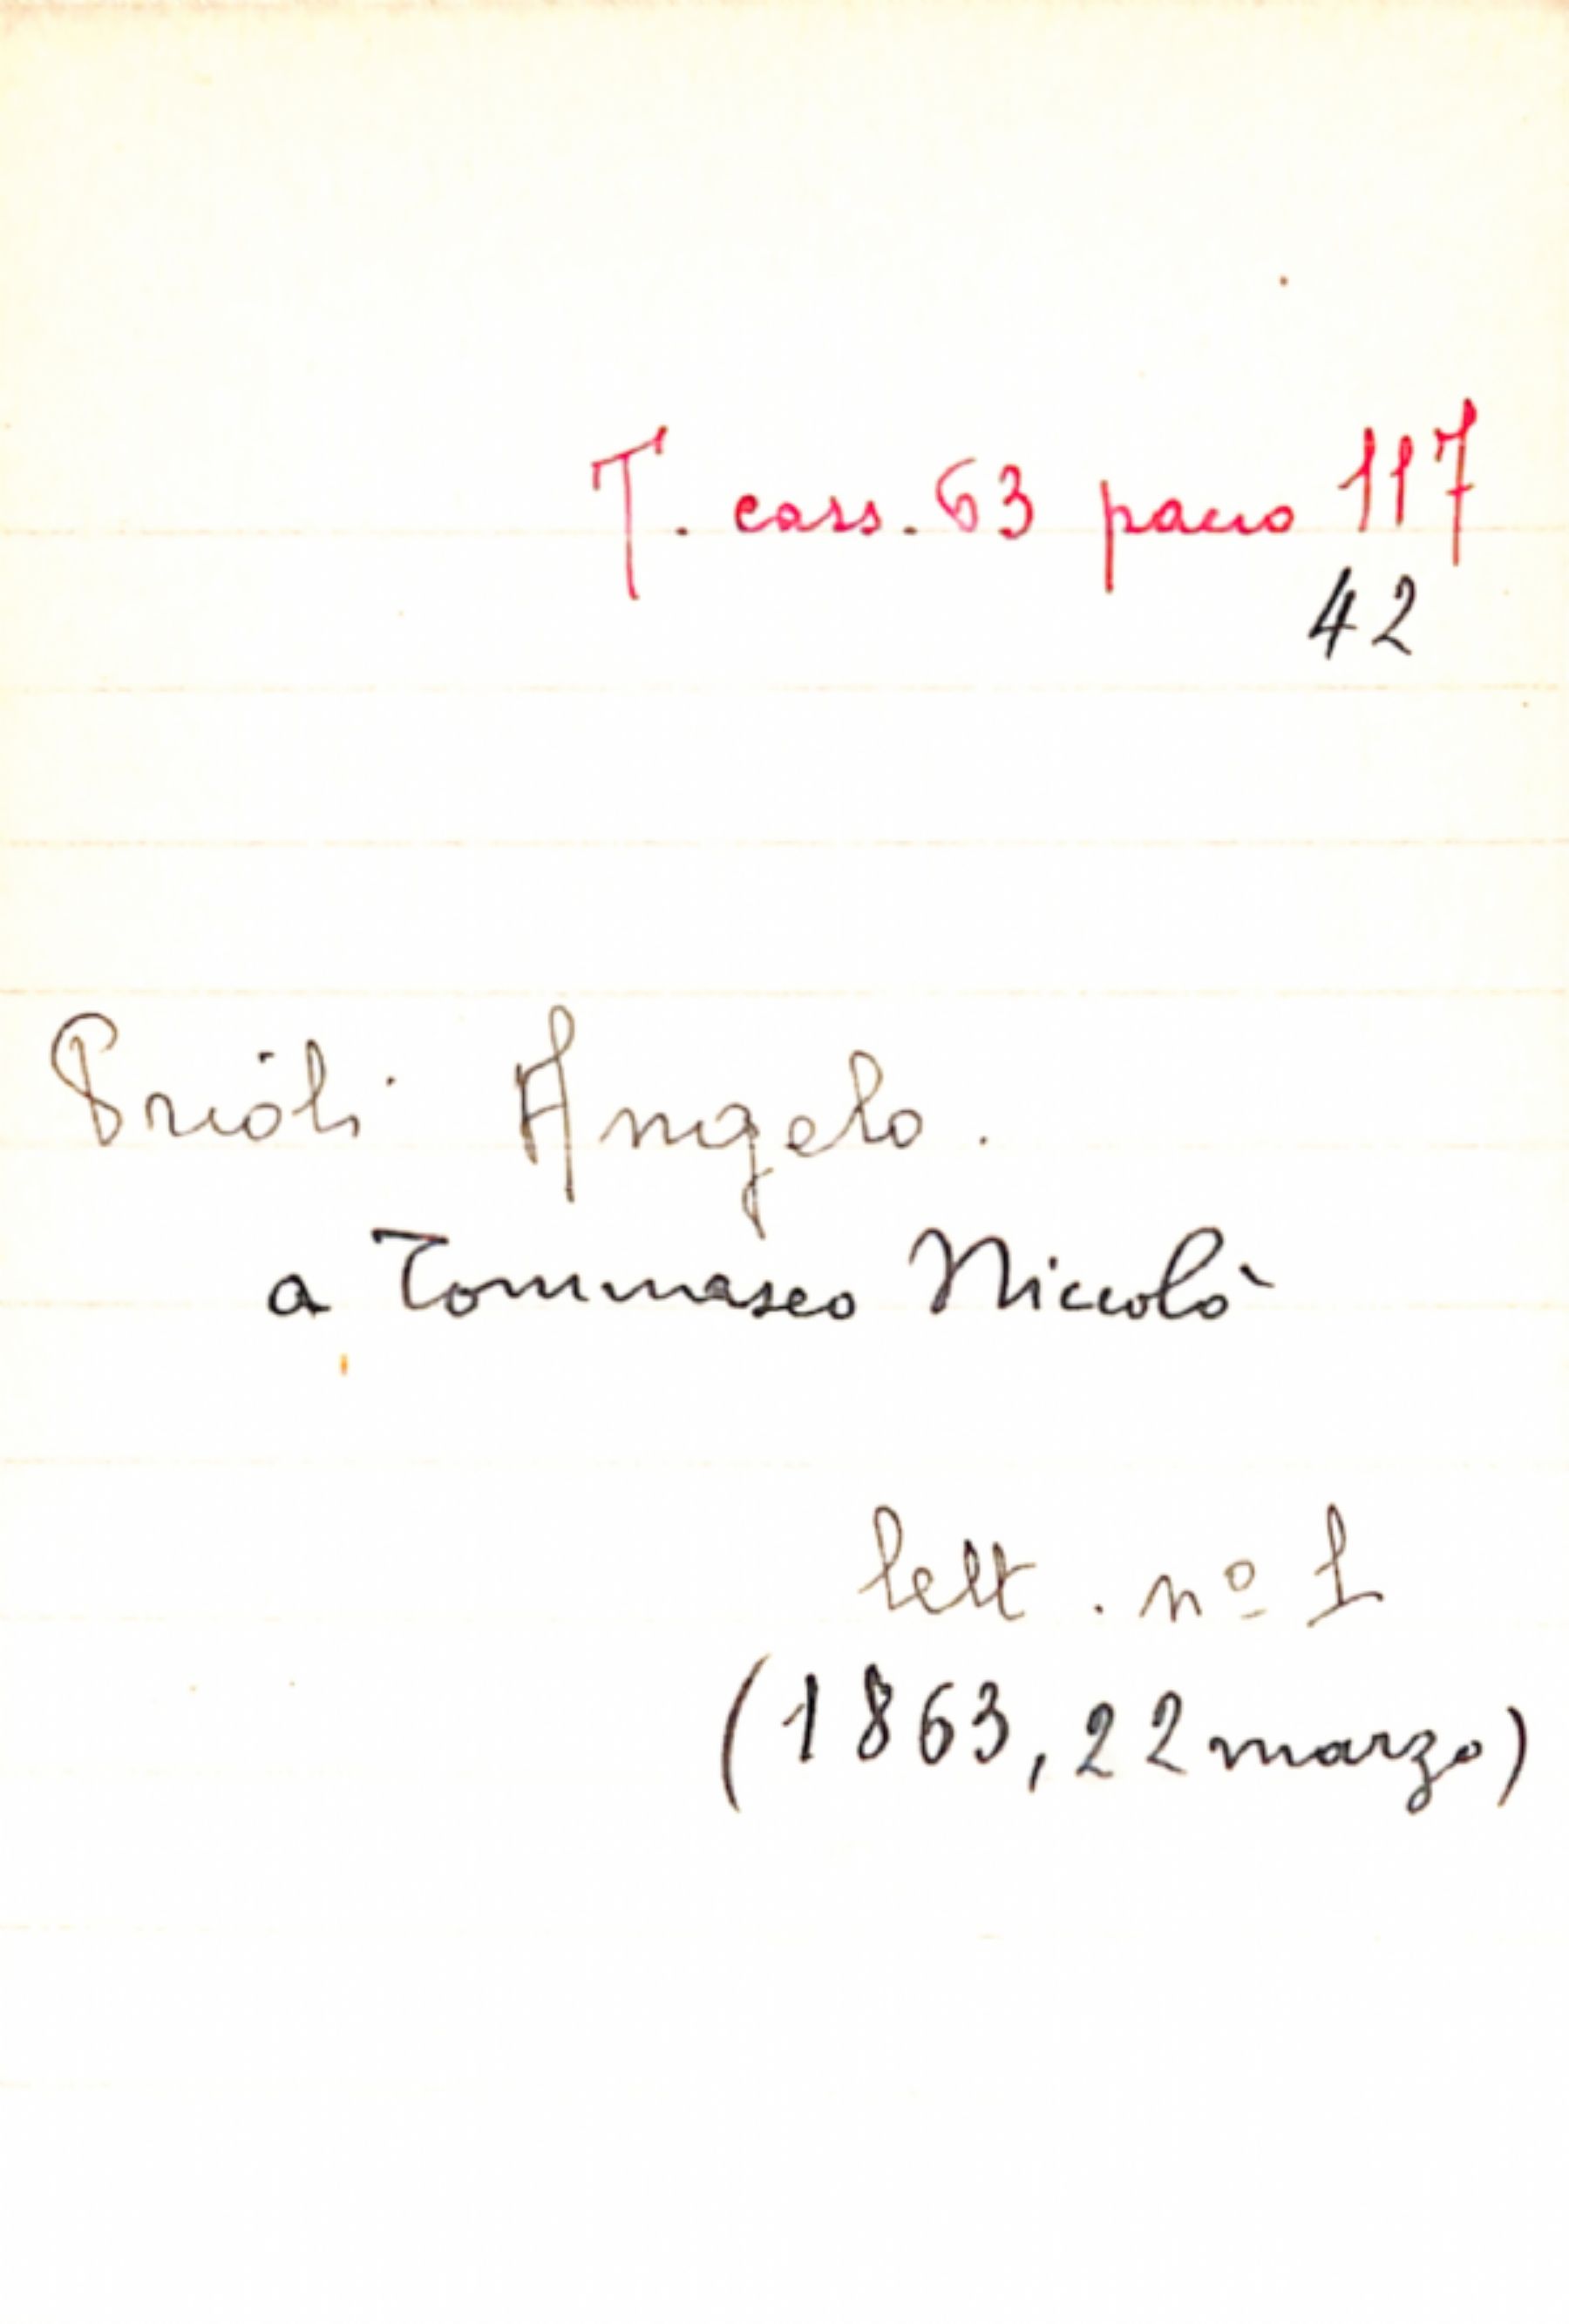 T. cass. 63 pacco 117
42
Prioli Angelo.
a Tommaseo Niccolò
lett. nº 1
(1863, 22 marzo)